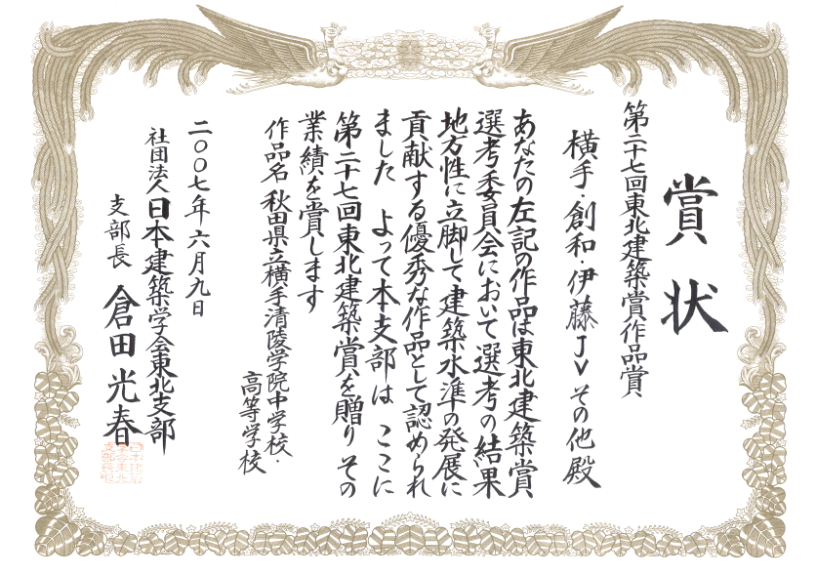 賞状
第二十七回東北建築賞作品賞
横手・創和・伊藤JV その他殿
あなたの左記の作品は東北建築賞
選考委員会において選考の結果
地方性に立脚して建築水準の発展に
貢献する優秀な作品として認められ
ました よって本支部は ここに
第二十七回東北建築賞を贈り その
業績を賞します
作品名 秋田県立横手清陵学院中学校・
高等学校
二〇〇七年六月九日
社団法人日本建築学会東北支部
支部長 倉田光春